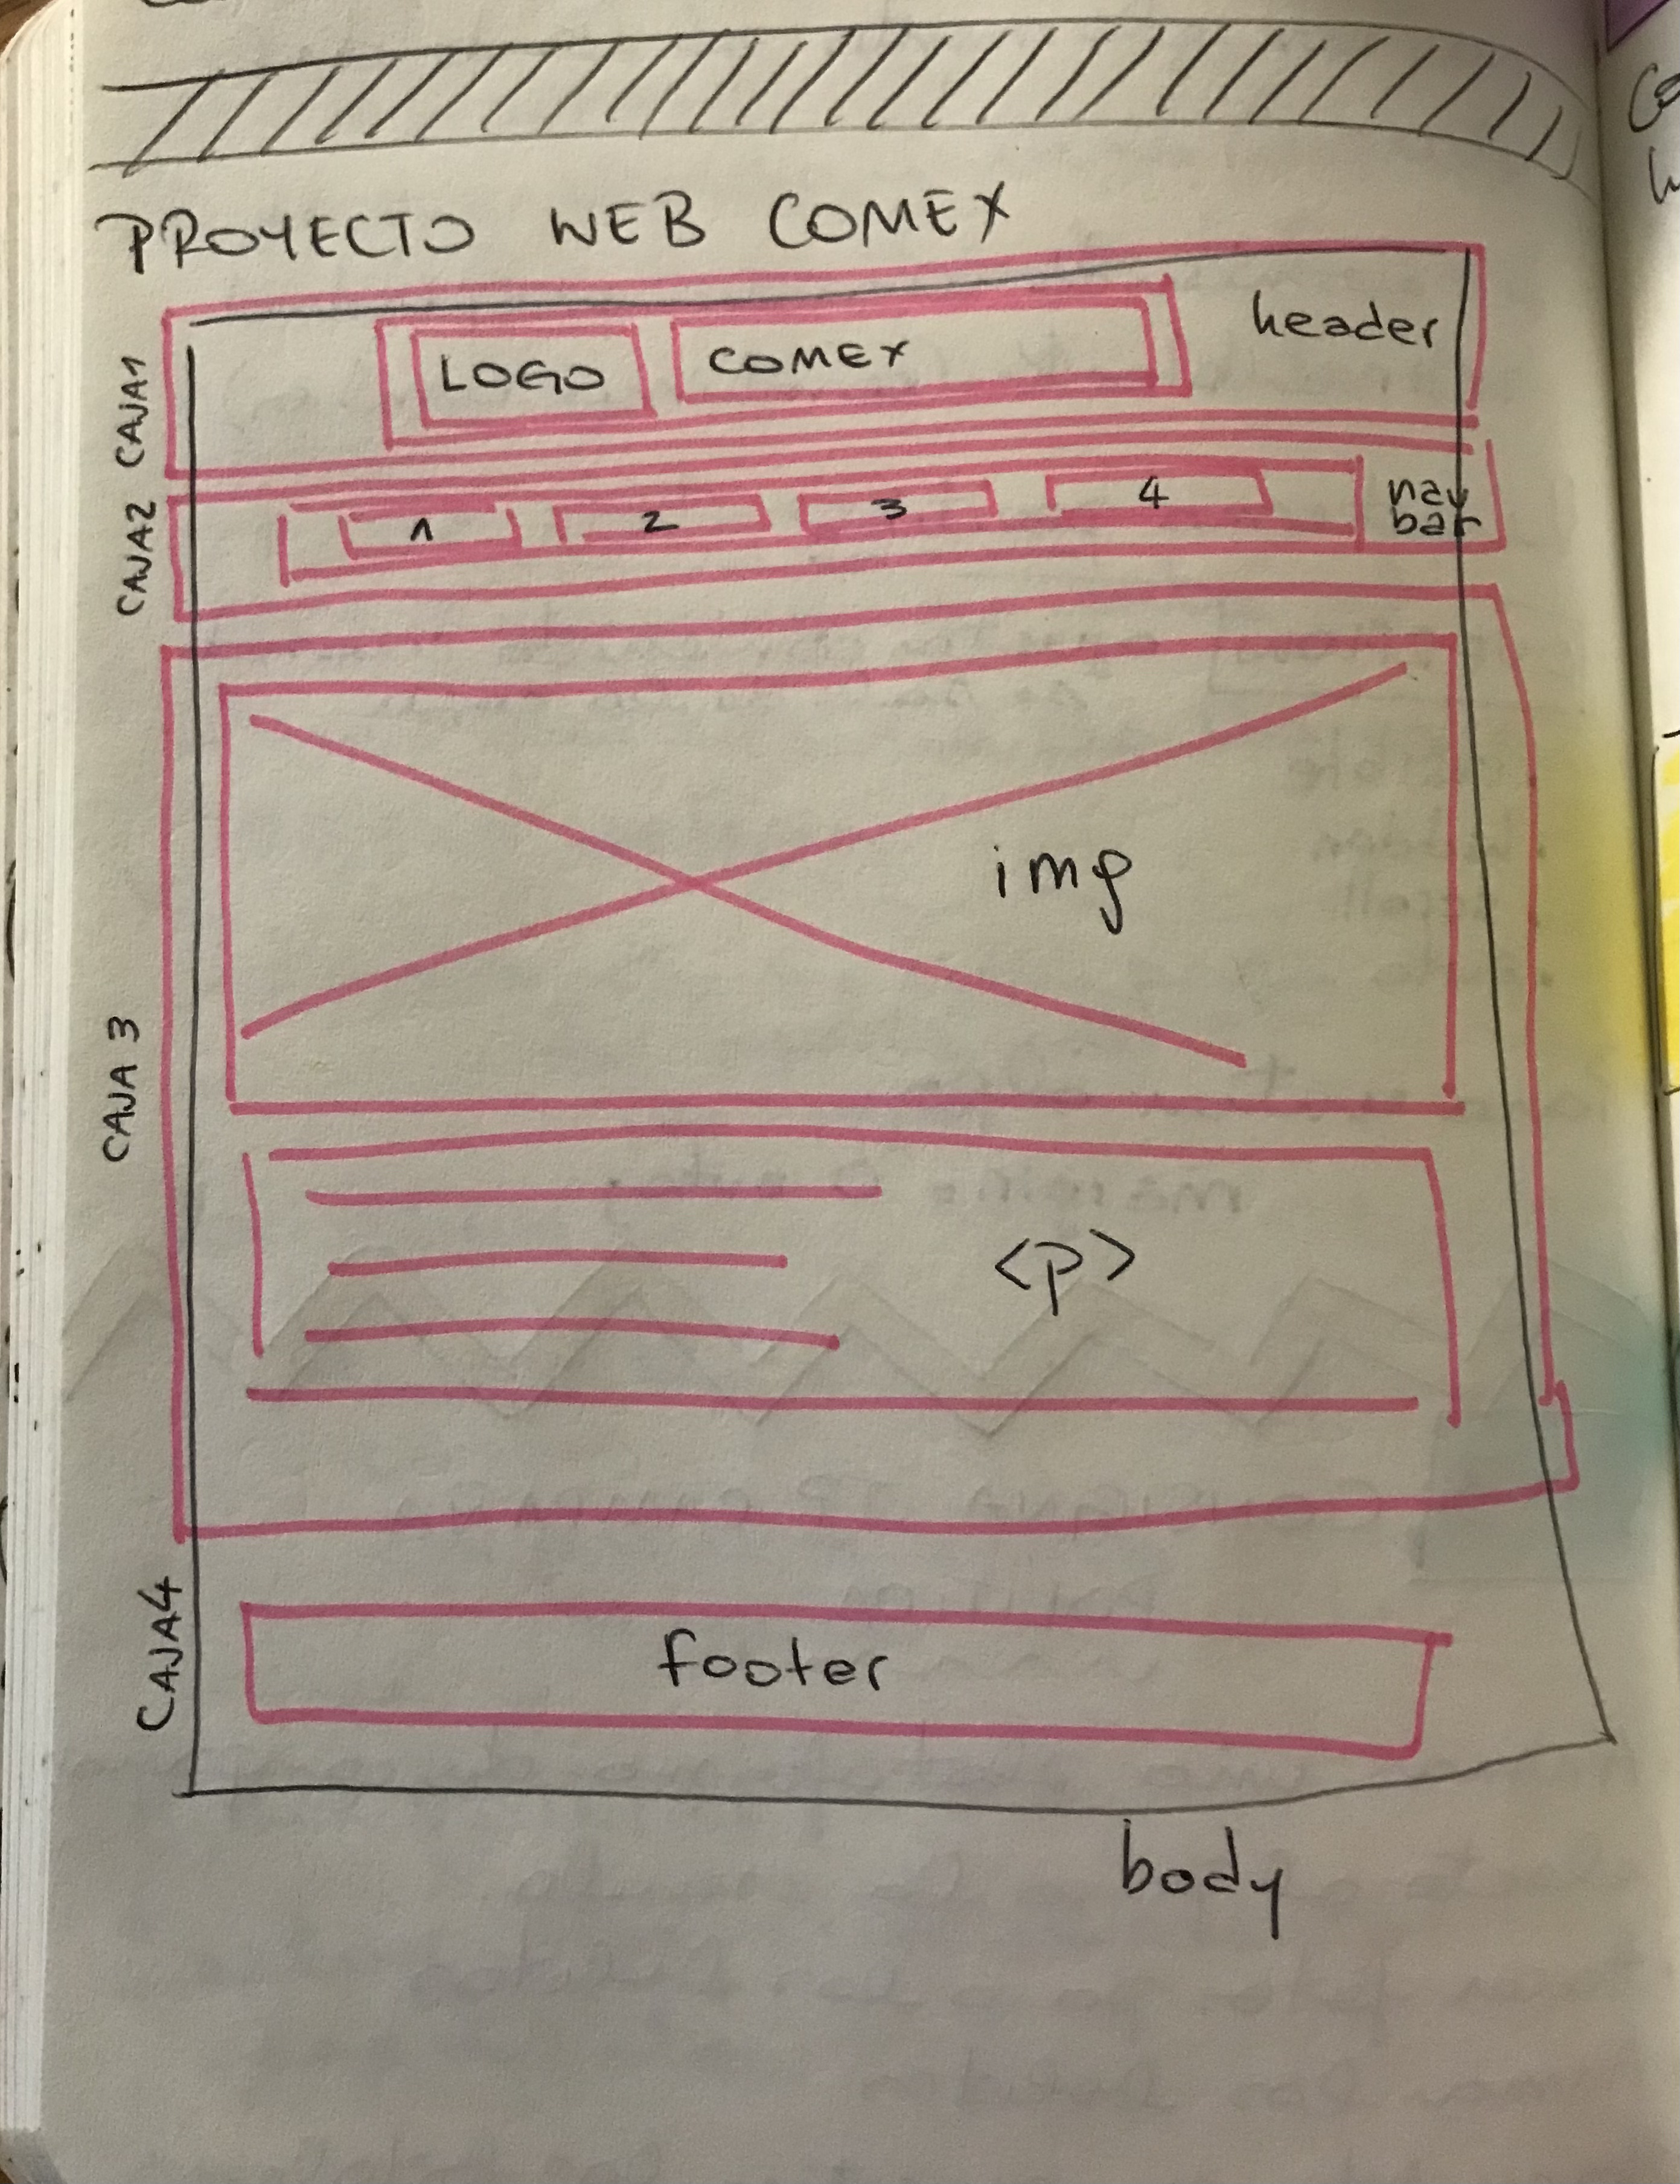 PROYECTO WEB COMEX
CAJA1
LOGO
COMEX
header
CAJA2
1
2
3
4
nav
bar
CAJA 3
img
<p>
CAJA4
footer
body